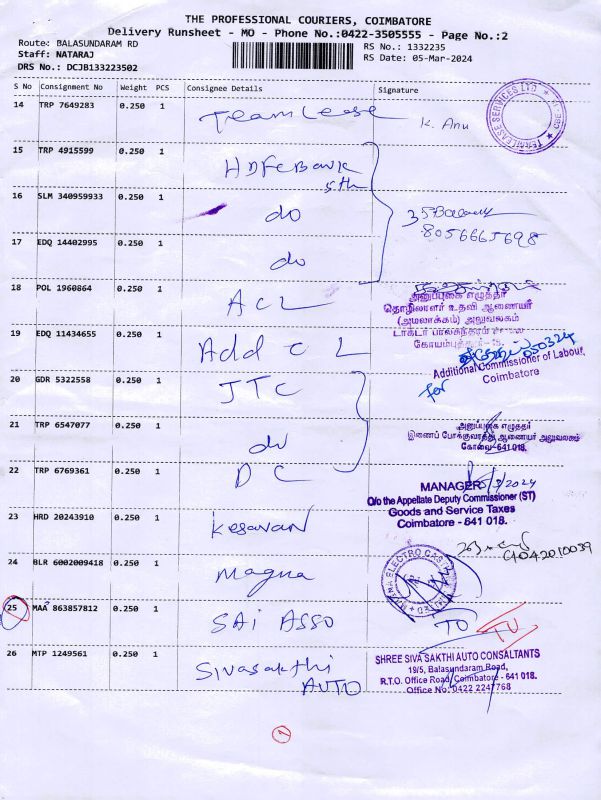 THE PROFESSIONAL COURIERS, COIMBATORE
Delivery Runsheet - MO - Phone No.:0422-3505555 - Page No.:2
Route: BALASUNDARAM RD
RS No.: 1332235
Staff: NATARAJ
RS Date: 05-Mar-2024
DRS No.: DCJB133223502
S No Consignment No Weight PCS Consignee Details Signature
14 TRP 7649283 0.250 1 Teamlease K. Anu
TEAMLEASE SERVICES LTD
15 TRP 4915599 0.250 1 HDFC Bank
5th
16 SLM 340959933 0.250 1 do
8056665698
17 EDQ 14402995 0.250 1 do
18 POL 1960864 0.250 1 ACL
அனுப்புகை எழுத்தர்
தொழிலாளர் உதவி ஆணையர்
(அமலாக்கம்) அலுவலகம்
டாக்டர் பாலசுந்தரம்
கோயம்புத்தூர்
19 EDQ 11434655 0.250 1 Add CL
050324
Additional Commissioner of Labour,
Coimbatore
for
20 GDR 5322558 0.250 1 JTC
21 TRP 6547077 0.250 1 do
அனுப்புகை எழுத்தர்
இணைப் போக்குவரத்து ஆணையர் அலுவலகம்
கோவை-641 018.
22 TRP 6769361 0.250 1 DC
MANAGER 5/3/2024
O/o the Appellate Deputy Commissioner (ST)
Goods and Service Taxes
Coimbatore - 641 018.
23 HRD 20243910 0.250 1 Kesavan
24 BLR 6002009418 0.250 1 Magna
25 MAA 863857812 0.250 1 SAI ASSO
TO TU
26 MTP 1249561 0.250 1 Sivasakthi
AUTO
SHREE SIVA SAKTHI AUTO CONSALTANTS
19/5, Balasundaram Road,
R.T.O. Office Road, Coimbatore - 641 018.
Office No: 0422 2247768
1